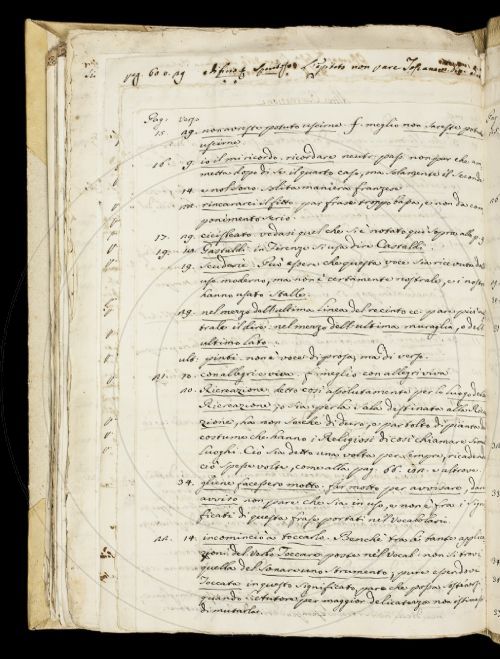 pag. 60 v. 29 Spirito non pare Toscano
Pag: verso
15. 29. non avreste potuto uscirne. f. meglio non sareste potuto
uscirne.
16. 9. io il mi ricordo, ricordare neutr: pass: non par che am
metta dopo di se il quarto caso, ma solamente il secondo
14. solita maniera franzese
rincararci il fitto. par frase troppo bassa, e non da com
ponimento serio.
17. 29. cicisbeato vedasi quel che si è notato qui sopra alla p. 9
19. 14. Gastaldi. in Firenze si usa dire Castaldi.
19. Scuderie. Può essere che questa voce sia ricevuta dall'
uso moderno, ma non è certamente nostrale, e i nostri
hanno usato Stalle.
29. nel mezzo dell'ultima linea del recinto ec. pare più na
trale il dire: nel mezzo dell'ultima muraglia, o dell'
ultimo lato.
ult. non è voce di prosa, ma di verso.
21. 10. con allegri e viva. f. meglio con allegri viva
20. Ricreazione detto così assolutamente per lo luogo della
Ricreazione o sia per la sala destinata alla Ricrea
zione, ha non so che di duro, o par tolto di pianta dal
costume che hanno i Religiosi di così chiamare simi
luoghi. Ciò sia detto una volta per sempre, ricadendo
ciò spesse volte, come alla pag. 66. e altrove.
34. gliene facessero motto. far motto per avvisare, dare
avviso non pare che sia in uso, e non è fra i signi
ficati di questa frase portati nel Vocabolario.
22. 14. incominciò a toccarlo. Benchè tra le tante applica
zioni del Verbo Toccare poste nel Vocab: non si trovi
quella del sonare uno strumento, pure essendovi
Toccata in questo significato, pare che possa sostenersi
quando l'autore per maggior delicatezza non istimasse
di mutarla.